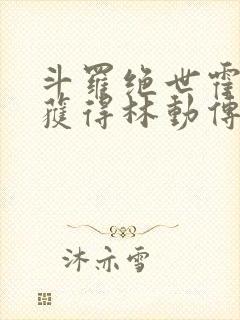 斗羅绝世霍
獲得林動傳
沐亦雪